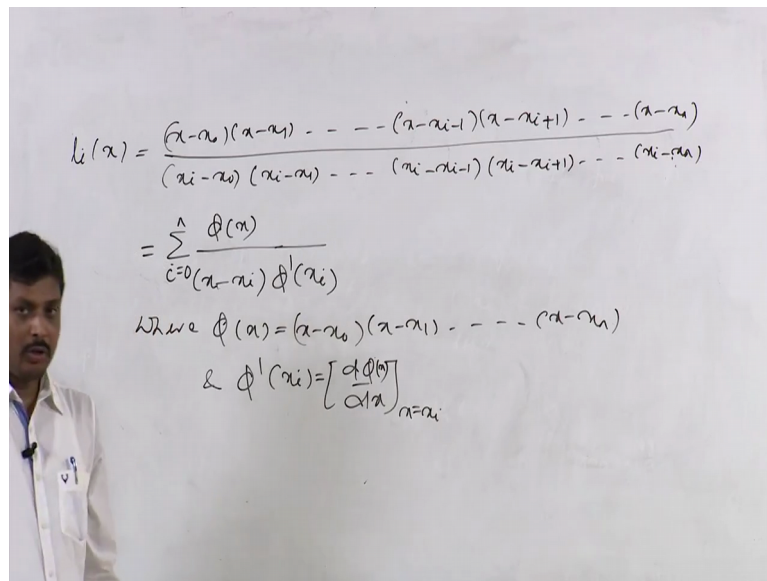 li(x) = (x-x0)(x-x1) - - - - (x-xi-1)(x-xi+1) - - - (x-xn)
(xi-x0) (xi-x1) - - - (xi-xi-1) (xi-xi+1) - - - (xi-xn)
= n Σ i=0 ϕ(x) / (x-xi) ϕ'(xi)
Where ϕ(x) = (x-x0)(x-x1) - - - - (x-xn)
& ϕ'(xi) = [dϕ(x)/dx] x=xi